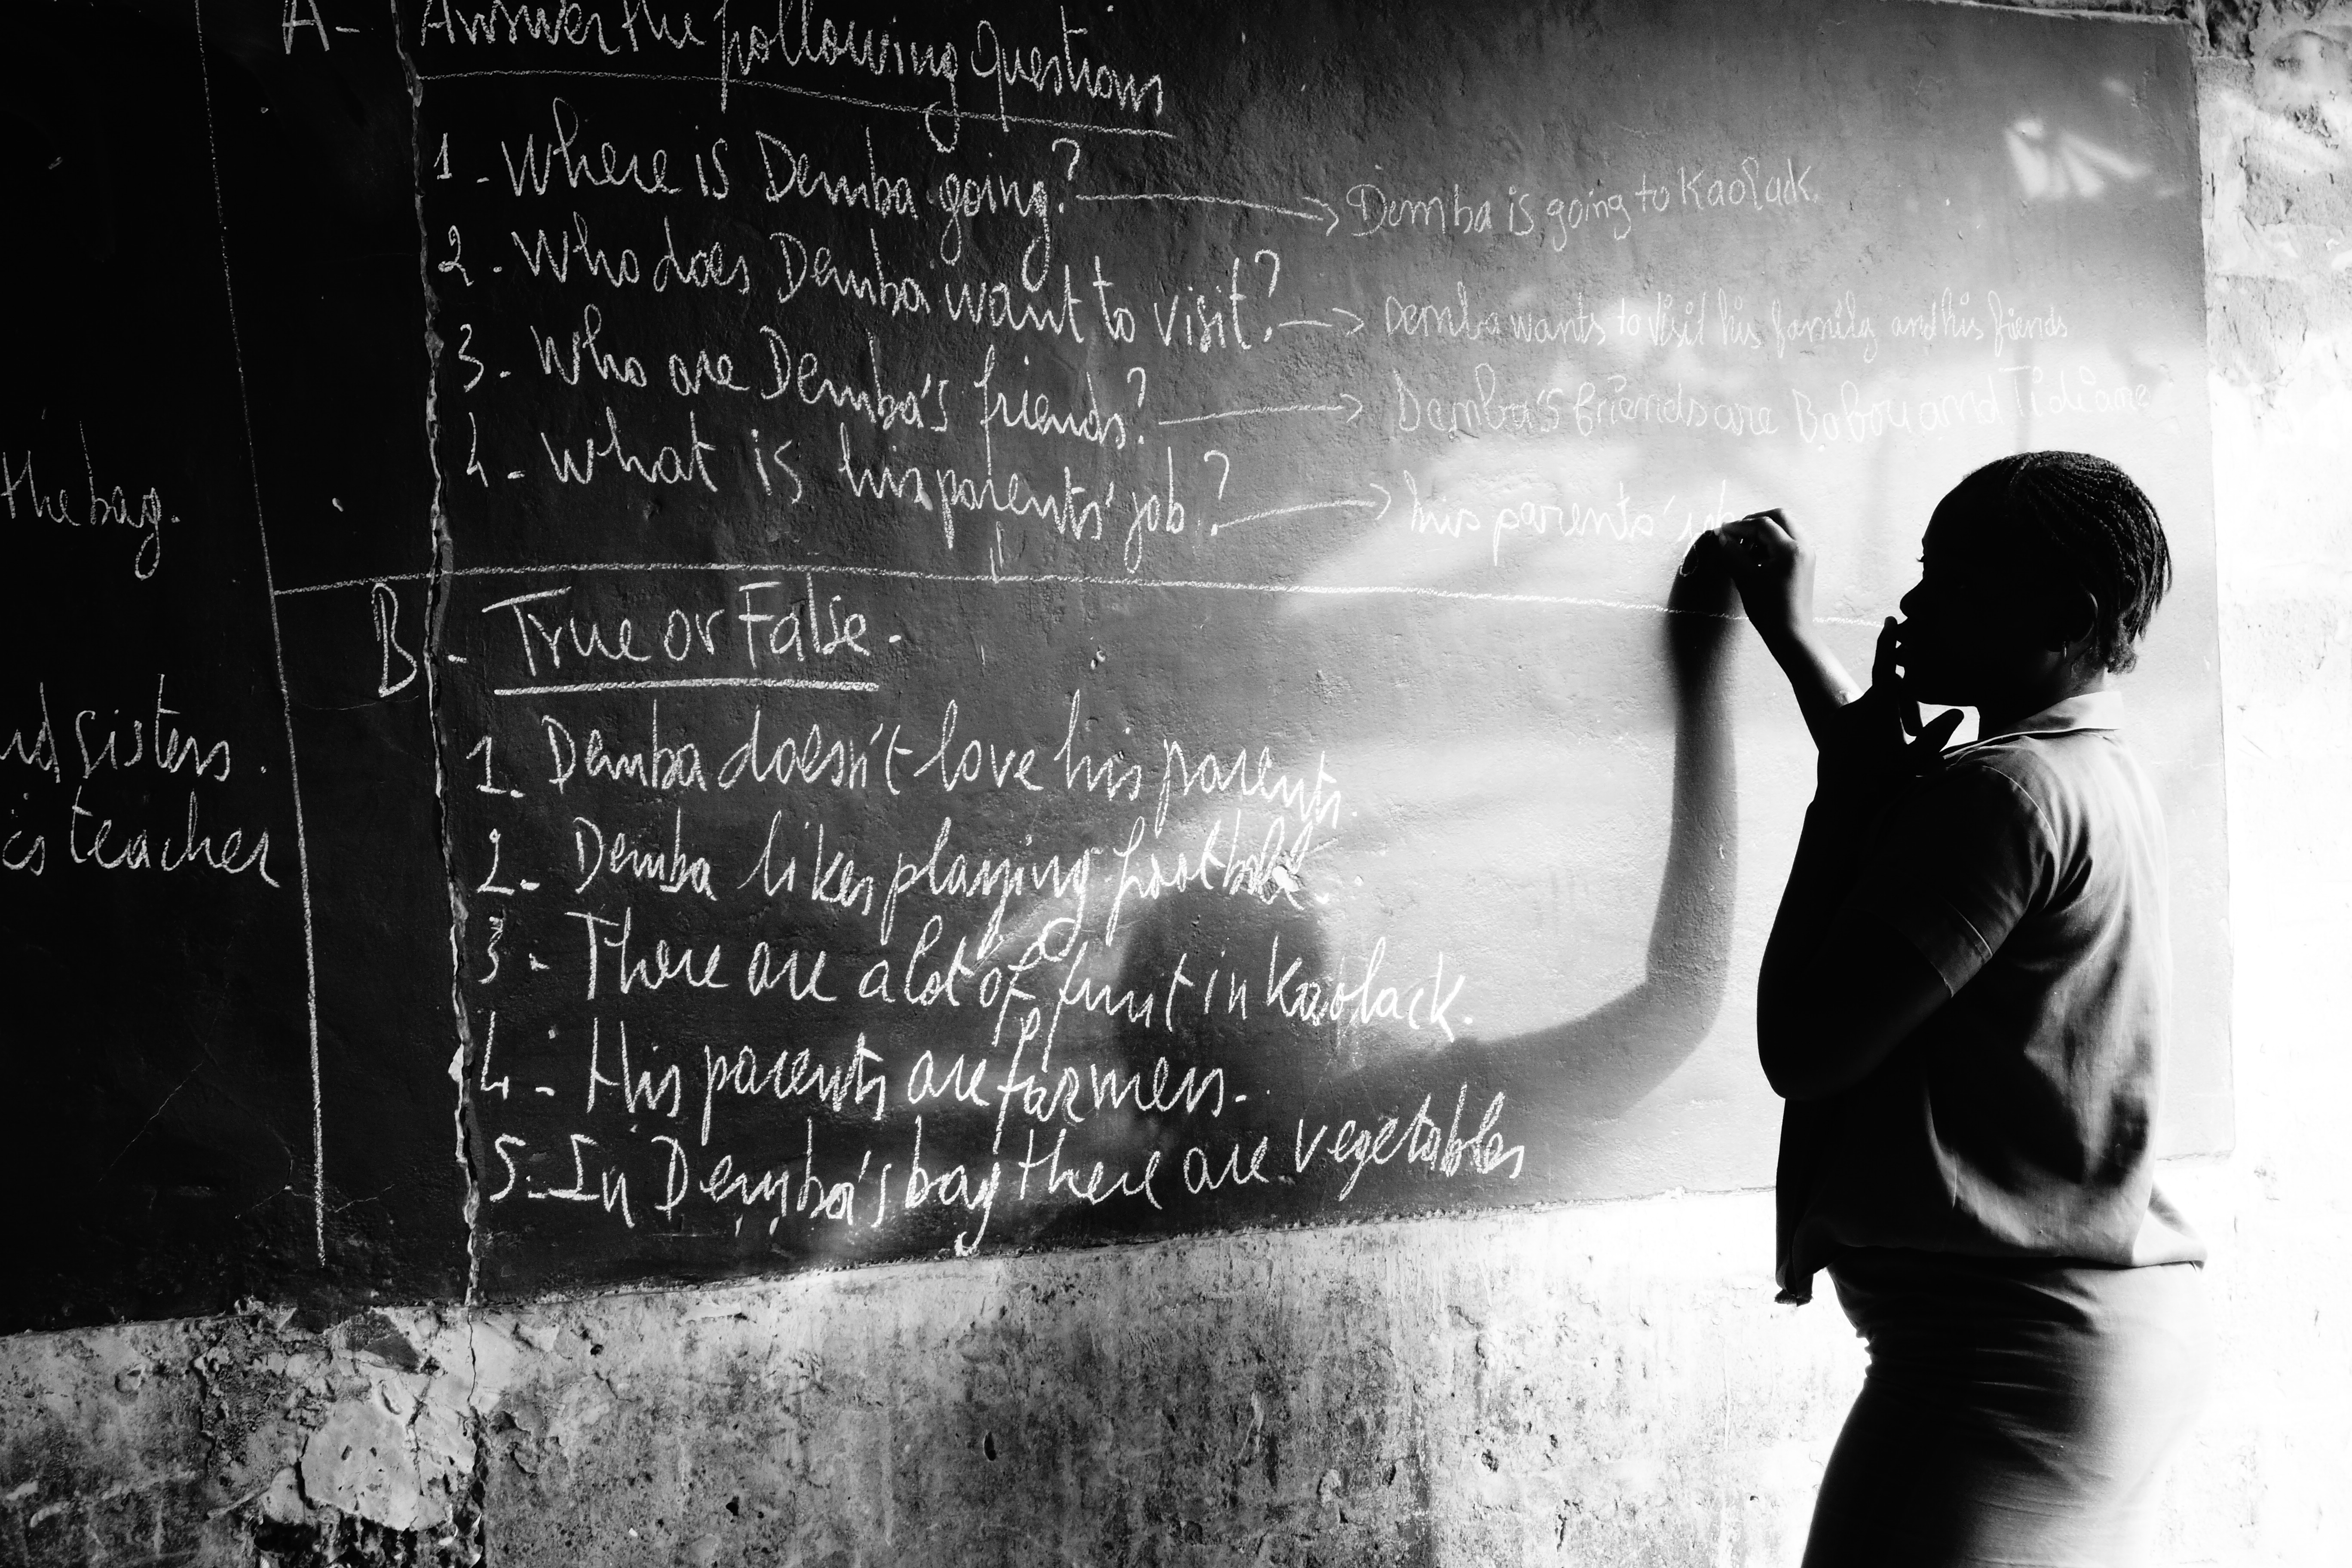 A- Answer the following questions
1 - Where is Demba going? → Demba is going to Kaolack.
2 - Who does Demba want to visit? → Demba wants to visit his family and his friends
3 - Who are Demba's friends? → Demba's friends are Babou and Tidiane
4 - What is his parents' job? → his parents' job
the bag.
B - True or False.
1. Demba doesn't love his parents.
sisters.
2- Demba likes playing football.
teacher
3 - There are a lot of fruit in Kaolack.
4 - His parents are farmers.
5. In Demba's bag there are vegetables